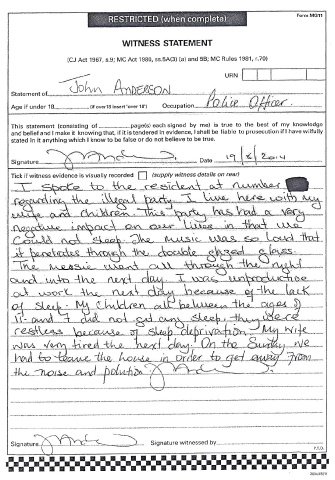 RESTRICTED (when complete)
Form MG11
WITNESS STATEMENT
(CJ Act 1967, s.9; MC Act 1980, ss.5A(3) (a) and 5B; MC Rules 1981, r.70)
URN
Statement of John ANDERSON
Age if under 18 (if over 18 insert 'over 18') Occupation Police Officer.
This statement (consisting of page(s) each signed by me) is true to the best of my knowledge
and belief and I make it knowing that, if it is tendered in evidence, I shall be liable to prosecution if I have wilfully
stated in it anything which I know to be false or do not believe to be true.
Signature Date 19/8/2014
Tick if witness evidence is visually recorded (supply witness details on rear)
I spoke to the resident at number
regarding the illegal party I live here with my
wife and children. This party has had a very
negative impact on our lives in that we
could not sleep. The music was so loud that
it penetrates through the double glazed glass.
The music went all through the night
and into the next day. I was unproductive
at work the next day because of the lack
of sleep. My children all between the ages of
and did not get any sleep, they were
restless because of sleep deprivation. My wife
was very tired the next day. On the Sunday we
had to leave the house in order to get away from
the noise and pollution
Signature Signature witnessed by
P.T.O.